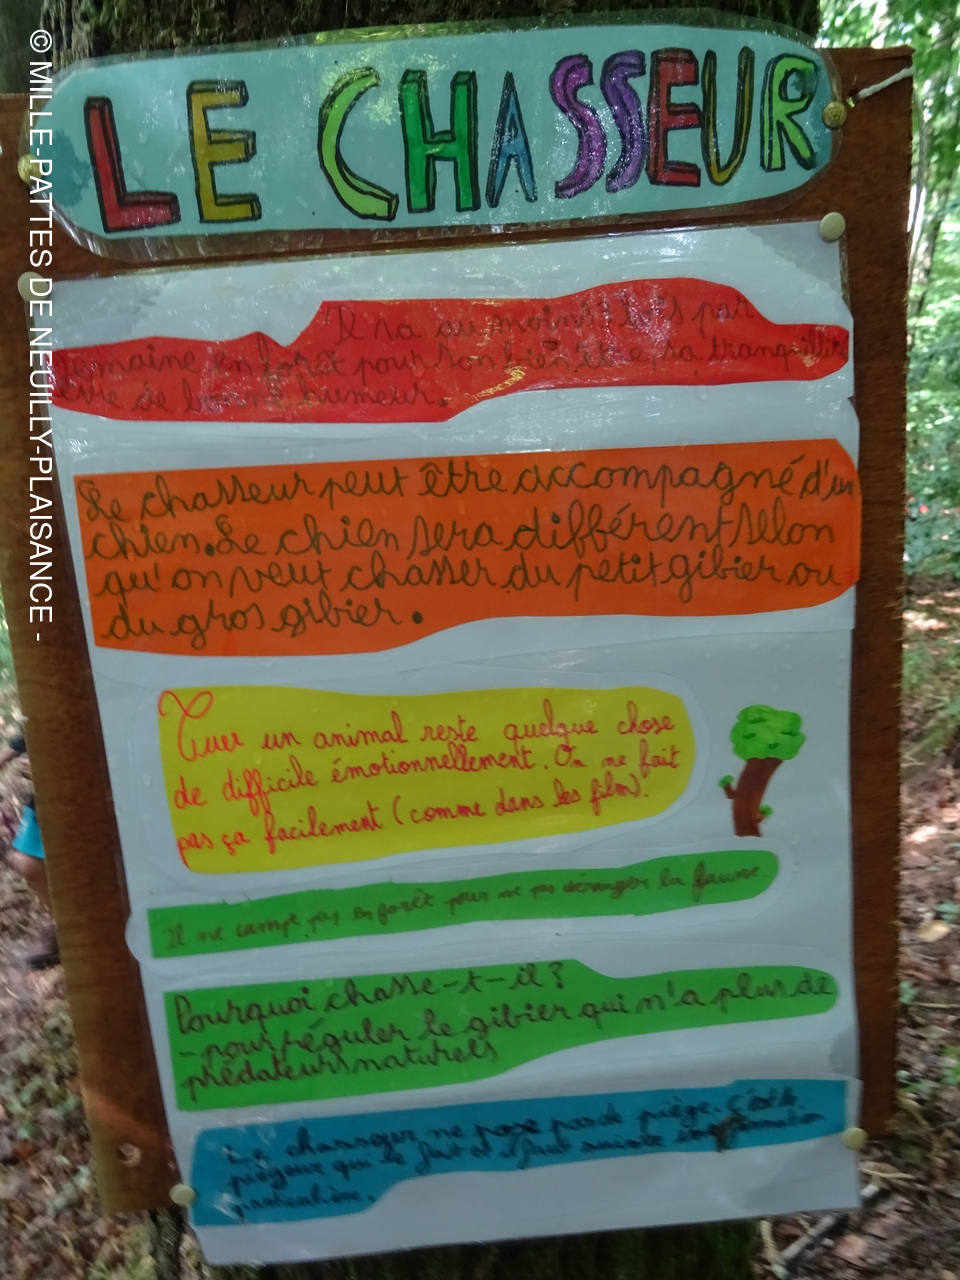 © MILLE-PATTES DE NEUILLY-PLAISANCE -
LE CHASSEUR
Il va au moins 2 fois par
semaine en forêt pour son bien être, sa tranquillité
être de bonne humeur.
Le chasseur peut être accompagné d'un
chien. Le chien sera différent selon
qu'on veut chasser du petit gibier ou
du gros gibier.
Tuer un animal reste quelque chose
de difficile émotionnellement. On ne fait
pas ça facilement (comme dans les film).
Il ne campe pas en forêt pour ne pas déranger la faune.
Pourquoi chasse-t-il ?
- pour réguler le gibier qui n'a plus de
prédateurs naturels
Le chasseur ne pose pas de piège. C'est le
piégeur qui le fait et il faut suivre une formation
particulière.